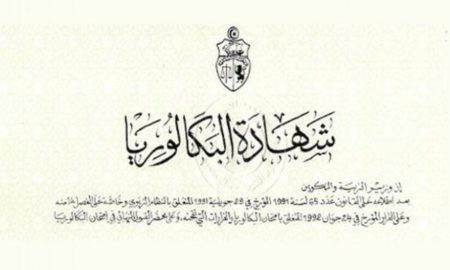 شهادة البكالوريا
إن وزير التربية والتكوين
بعد اطلاعه على القانون عدد 65 لسنة 1991 المؤرخ في 29 جويلية 1991 المتعلق بالنظام التربوي وخاصة على الفصل منه
وعلى القرار المؤرخ في 24 جوان 1992 المتعلق بامتحان البكالوريا والقرارات التي نقحته، وعلى محضر القبول النهائي في امتحان البكالوريا